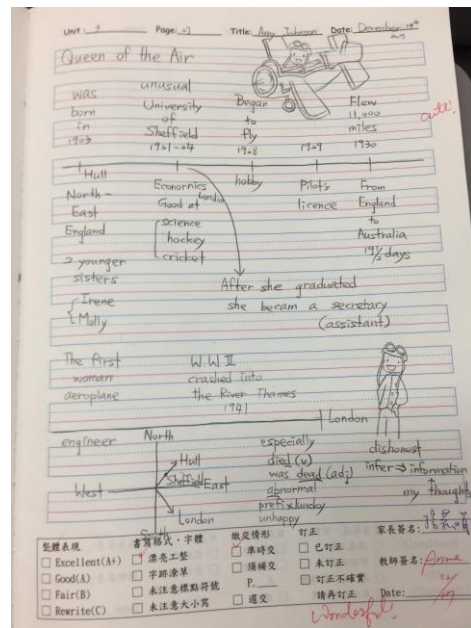 Unit: Page: Title: Amy Johnson Date: December
Queen of the Air
was born in 1903
unusual
University of Sheffield 1921-24
Began to fly 1928
1929
Flew 11,000 miles 1930
cute!
Hull
North-East England
Economics
Good at
London
science
hockey
cricket
hobby
Pilot's licence
From England to Australia 19½ days
2 younger sisters
Irene
Molly
After she graduated
she becam a secretary
(assistant)
The first woman aeroplane engineer
W.W.II
crashed into
the River Thames
1941
London
North
Hull
Sheffield
West
East
London
South
especially
died (v)
was dead (adj)
abnormal
prefix
unhappy
dishonest
infer → information
my thought
整體表現
□ Excellent(A+)
□ Good(A)
□ Fair(B)
□ Rewrite(C)
書寫格式、字體
□ 漂亮工整
□ 字跡潦草
□ 未注意標點符號
□ 未注意大小寫
繳交情形
□ 準時交
□ 須補交
P.
□ 遲交
訂正
□ 已訂正
□ 未訂正
□ 訂正不確實
請再訂正
家長簽名:
教師簽名: Anne
Date: 12/
Wonderful!